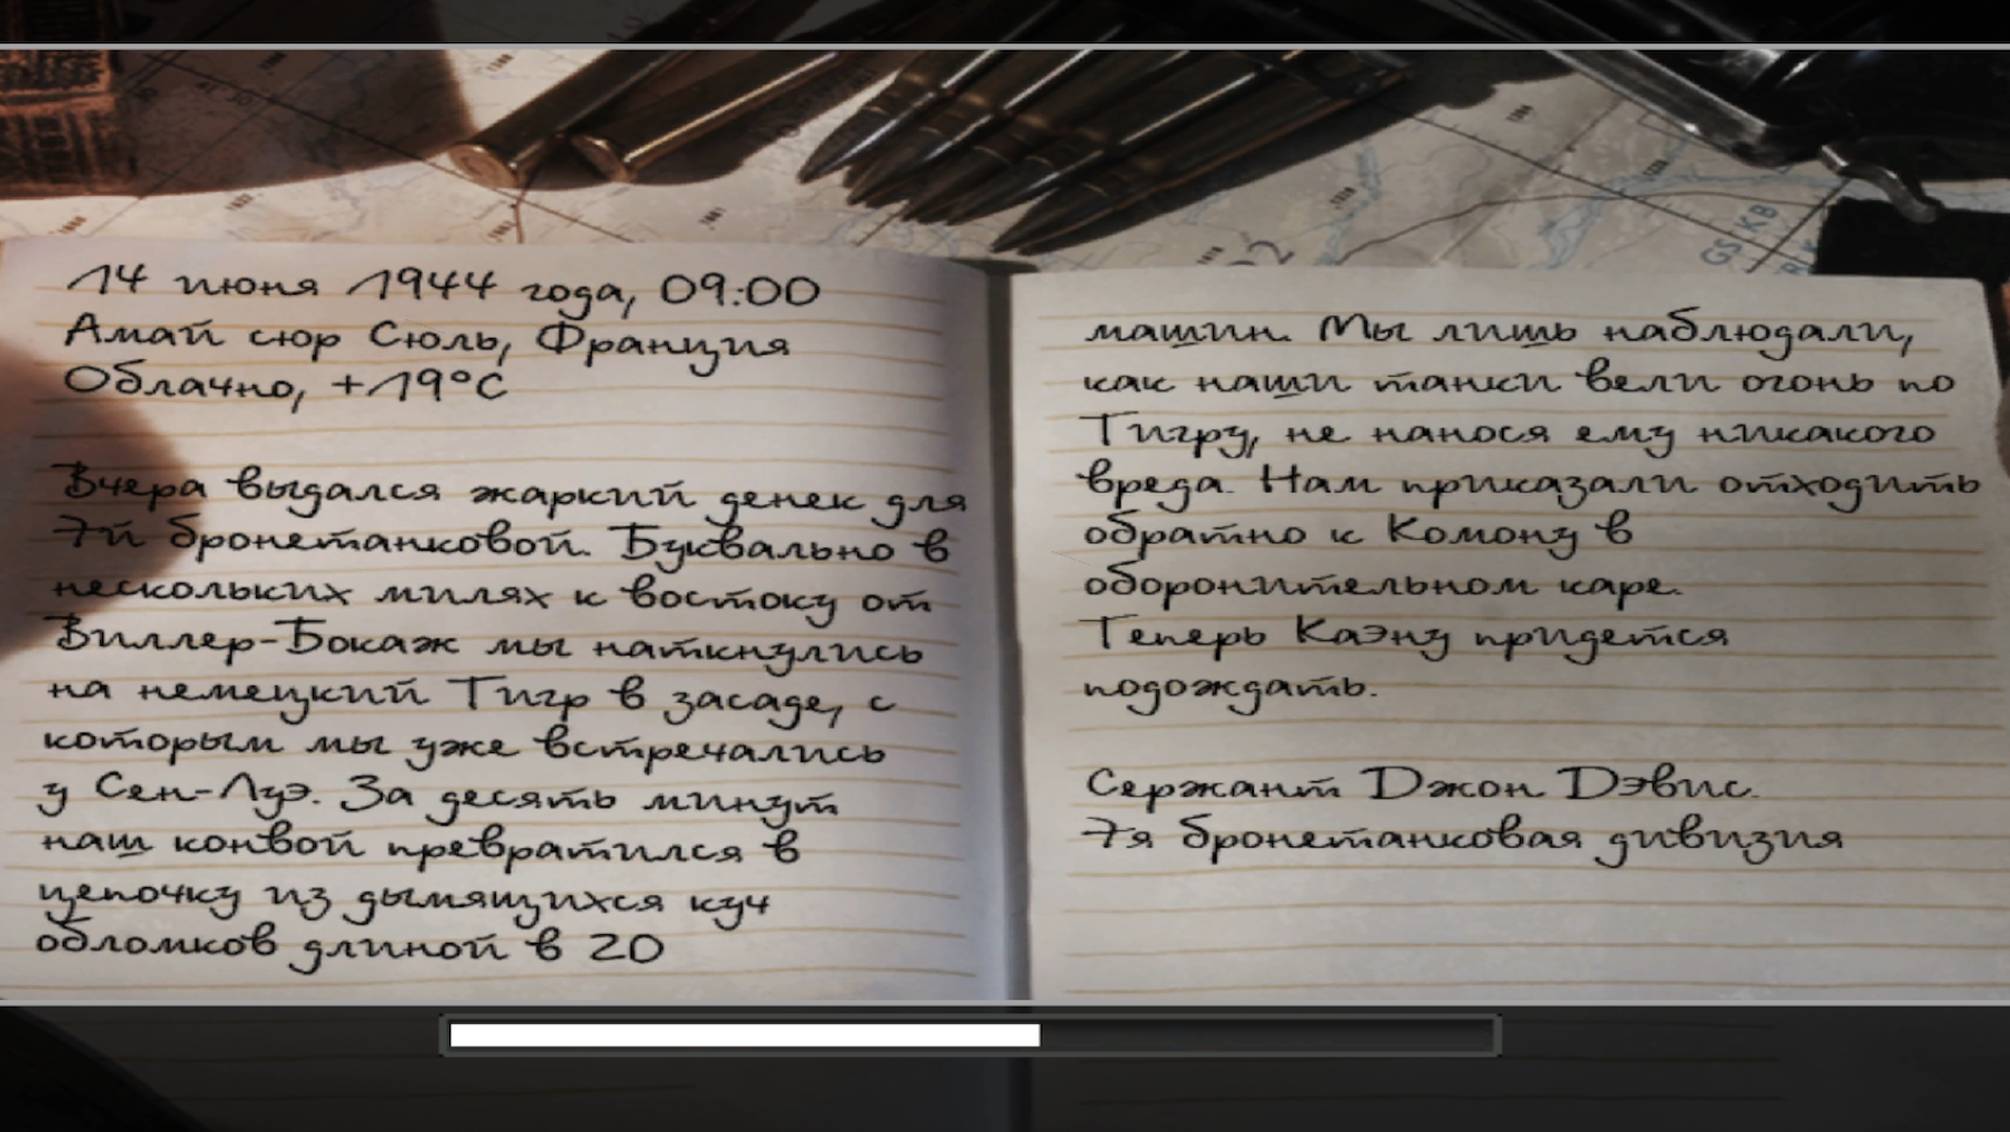 14 июня 1944 года, 09:00
Амай сюр Сюль, Франция
Облачно, +19°C
Вчера выдался жаркий денек для
7й бронетанковой. Буквально в
нескольких милях к востоку от
Виллер-Бокаж мы наткнулись
на немецкий Тигр в засаде, с
которым мы уже встречались
у Сен-Луэ. За десять минут
наш конвой превратился в
цепочку из дымящихся куч
обломков длиной в 20
машин. Мы лишь наблюдали,
как наши танки вели огонь по
Тигру, не нанося ему никакого
вреда. Нам приказали отходить
обратно к Комону в
оборонительном каре.
Теперь Каэну придется
подождать.
Сержант Джон Дэвис.
7я бронетанковая дивизия